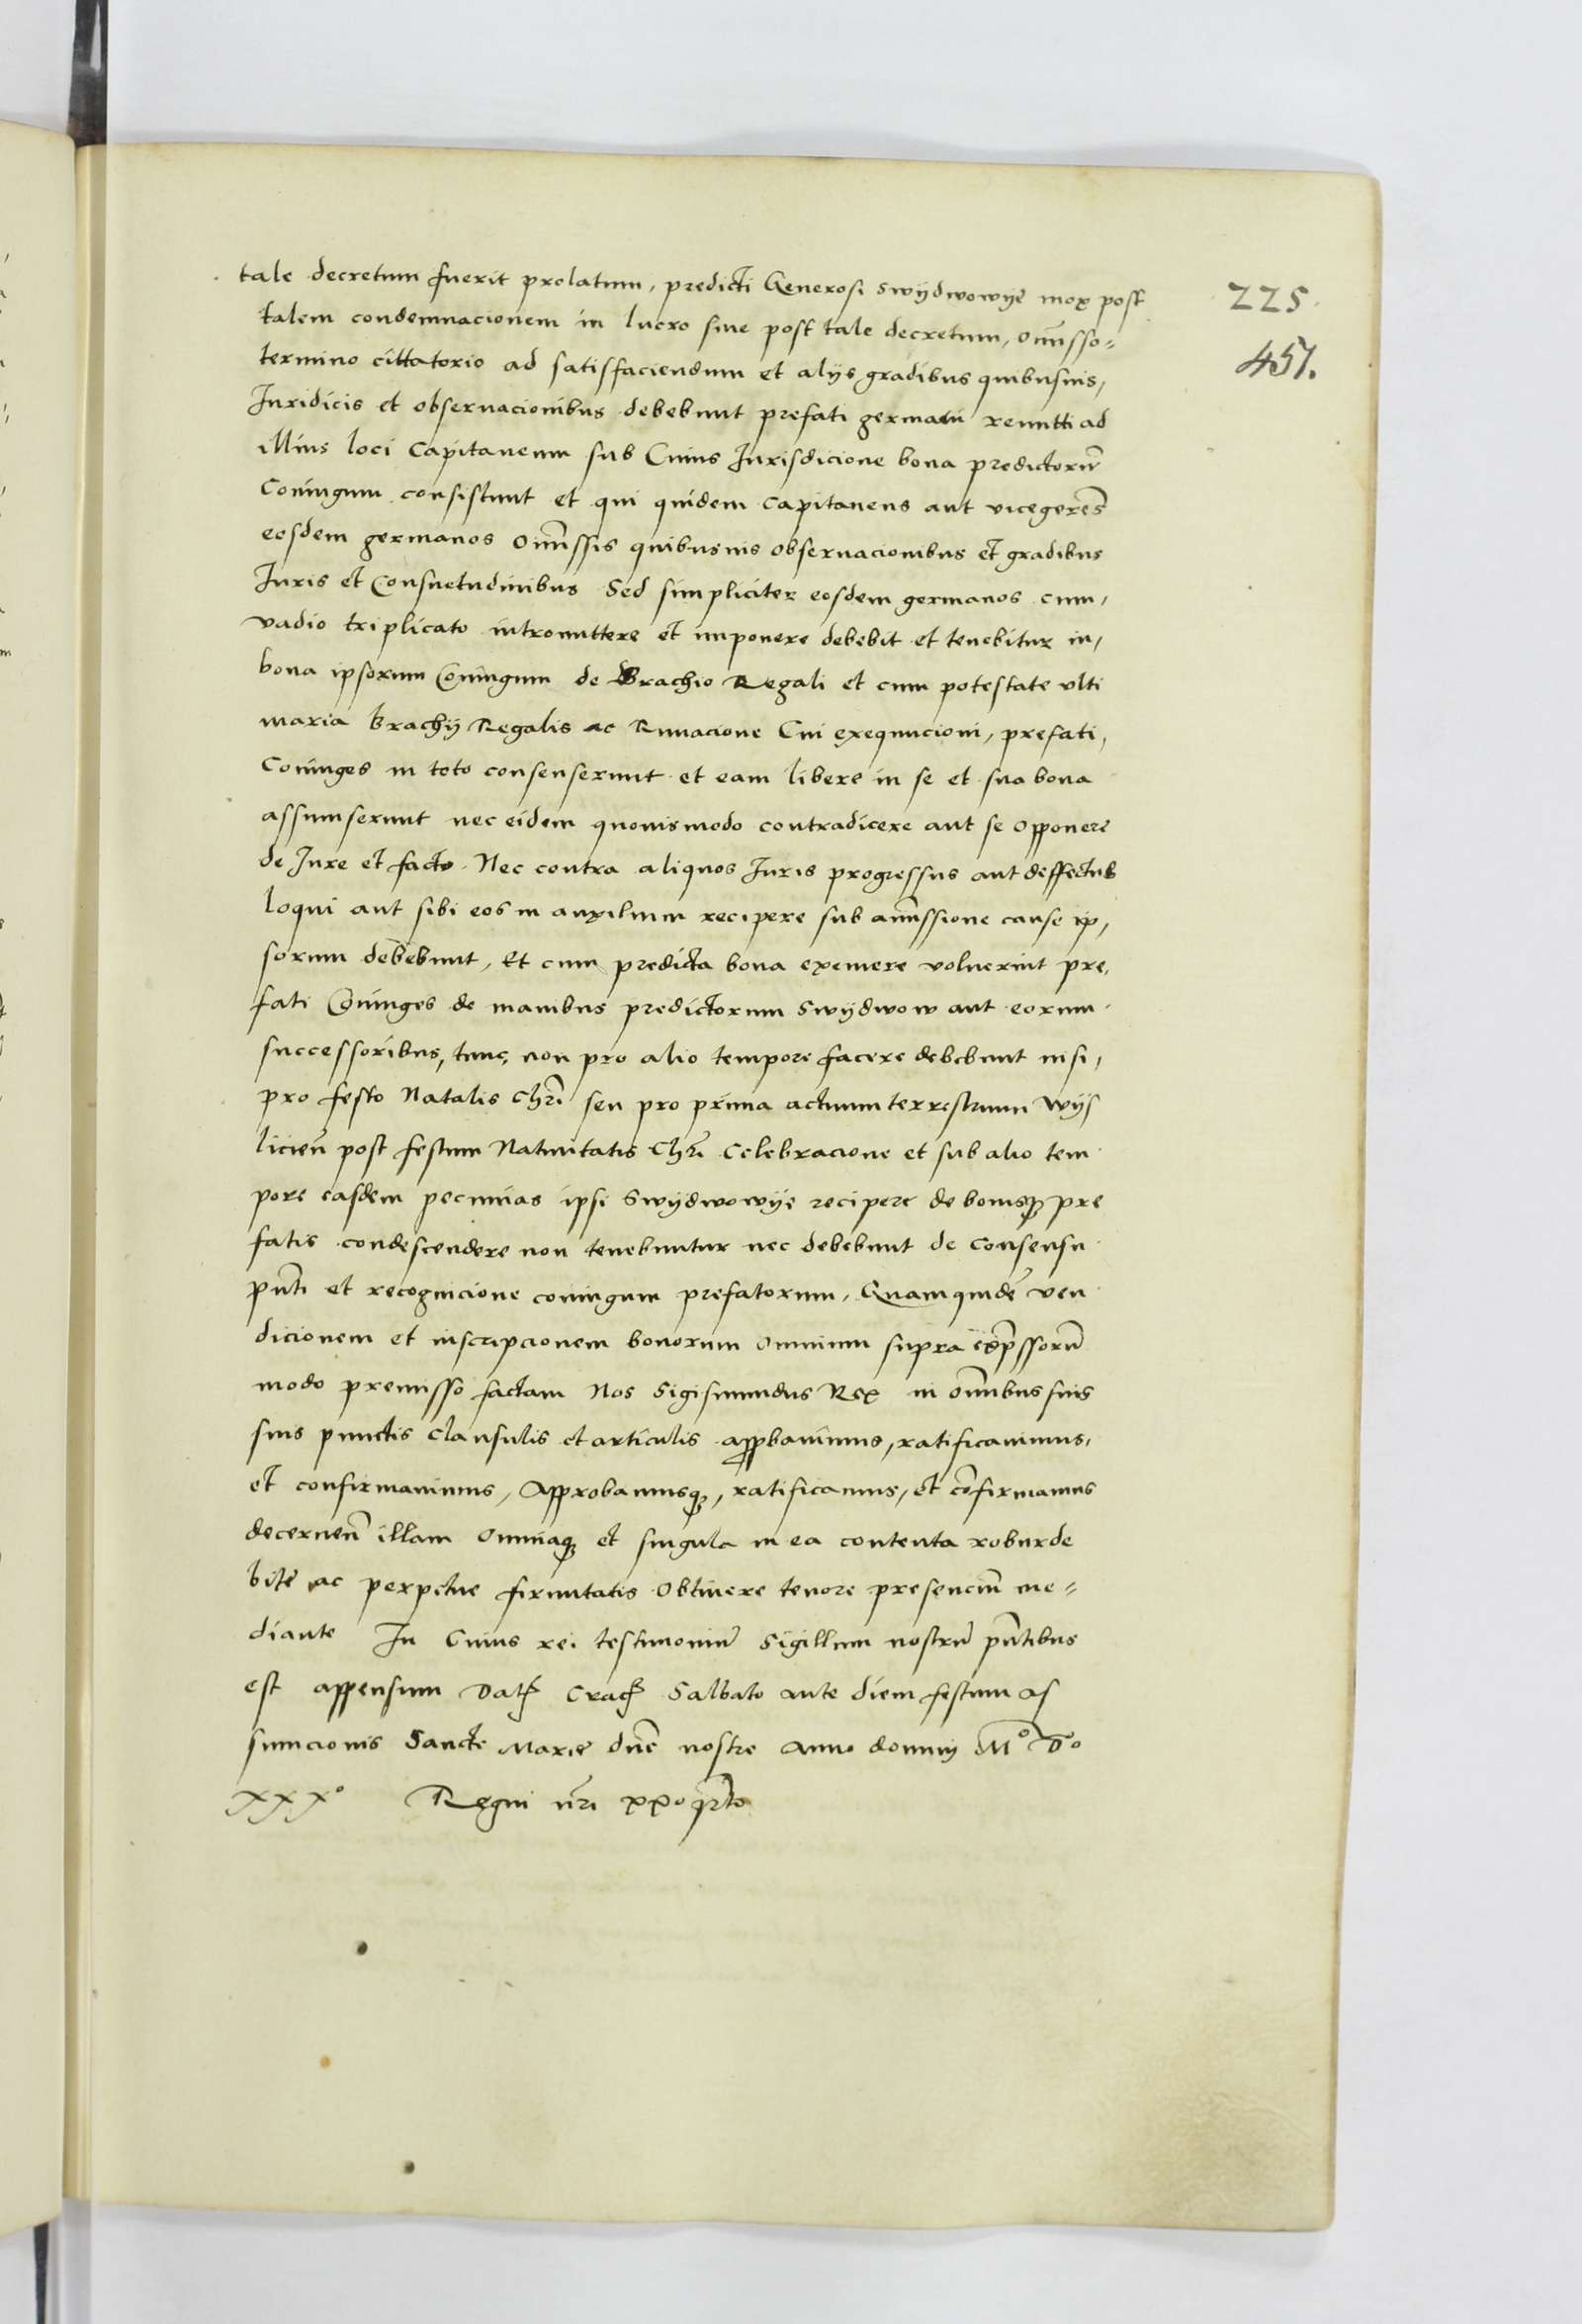 tale decretum fuerit prolatum, predicti Generosi Swydwowye mox post
225.
talem condemnacionem in lucro siue post tale decretum, omisso=
451.
termino cittatorio ad satisfaciendum et alijs gradibus quibusuis,
Juridicis et obseruacionibus debebunt prefati germani remitti ad
illius loci Capitaneum sub Cuius Jurisdicione bona predictorũ
Coniugum consistunt et qui quidem Capitaneus aut vicegerẽs
eosdem germanos omissis quibusuis obseruacionibus et gradibus
Juris et Consuetudinibus Sed simpliciter eosdem germanos cum,
vadio triplicato intromittere et imponere debebit et tenebitur in,
bona ipsorum Coniugum de Brachio Regali et cum potestate vlti
maria brachij Regalis ac Rumacione Cui exequucioni, prefati,
Coniuges in toto consenserunt et eam libere in se et sua bona
assumserunt nec eidem quouismodo contradicere aut se opponere
de Jure et facto. Nec contra aliquos Juris progressus aut deffectus
loqui aut sibi eos in auxilium recipere sub amissione cause ip,
sorum debebunt, Et cum predicta bona exemere voluerint pre,
fati Coniuges de manibus predictorum Swydwow aut eorum
successoribus, tunc non pro alio tempore facere debebunt nisi,
pro festo Natalis Chri seu pro prima actuum terrestrium Wys
licień post festum Natiuitatis Chri Celebracione et sub alio tem
pore easdem pecunias ipsi Swydwowye recipere de bonisq₃ pre
fatis condescendere non tenebuntur nec debebunt de consensu
pñti et recognicione coniugum prefatorum, Quamquidẽ ven
dicionem et inscripcionem bonorum omnium supra exp̃ssorũ
modo premisso factam Nos Sigismundus Rex in omĩbus suis
suis punctis clausulis et articulis appbauimus, ratificauimus,
et confirmauimus, Approbamusq₃, ratificamus, et cõfirmamus
decerneñ illam omniaq₃ et singula in ea contenta robur de
bite ac perpetue firmitatis obtinere tenore presenciũ me=
diante In Cuius rei testimoniũ Sigillum nostrũ pñtibus
est appensum Dat Crac Sabbato ante diem festum As
sumcionis Sancte Marie dñe nostre Anno domini Mº Dº
xxxº Regni ñri xxº qrto